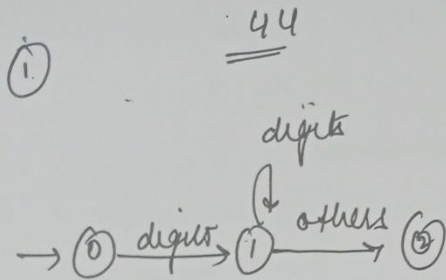 44
1.
digits
0 digits 1 others 2